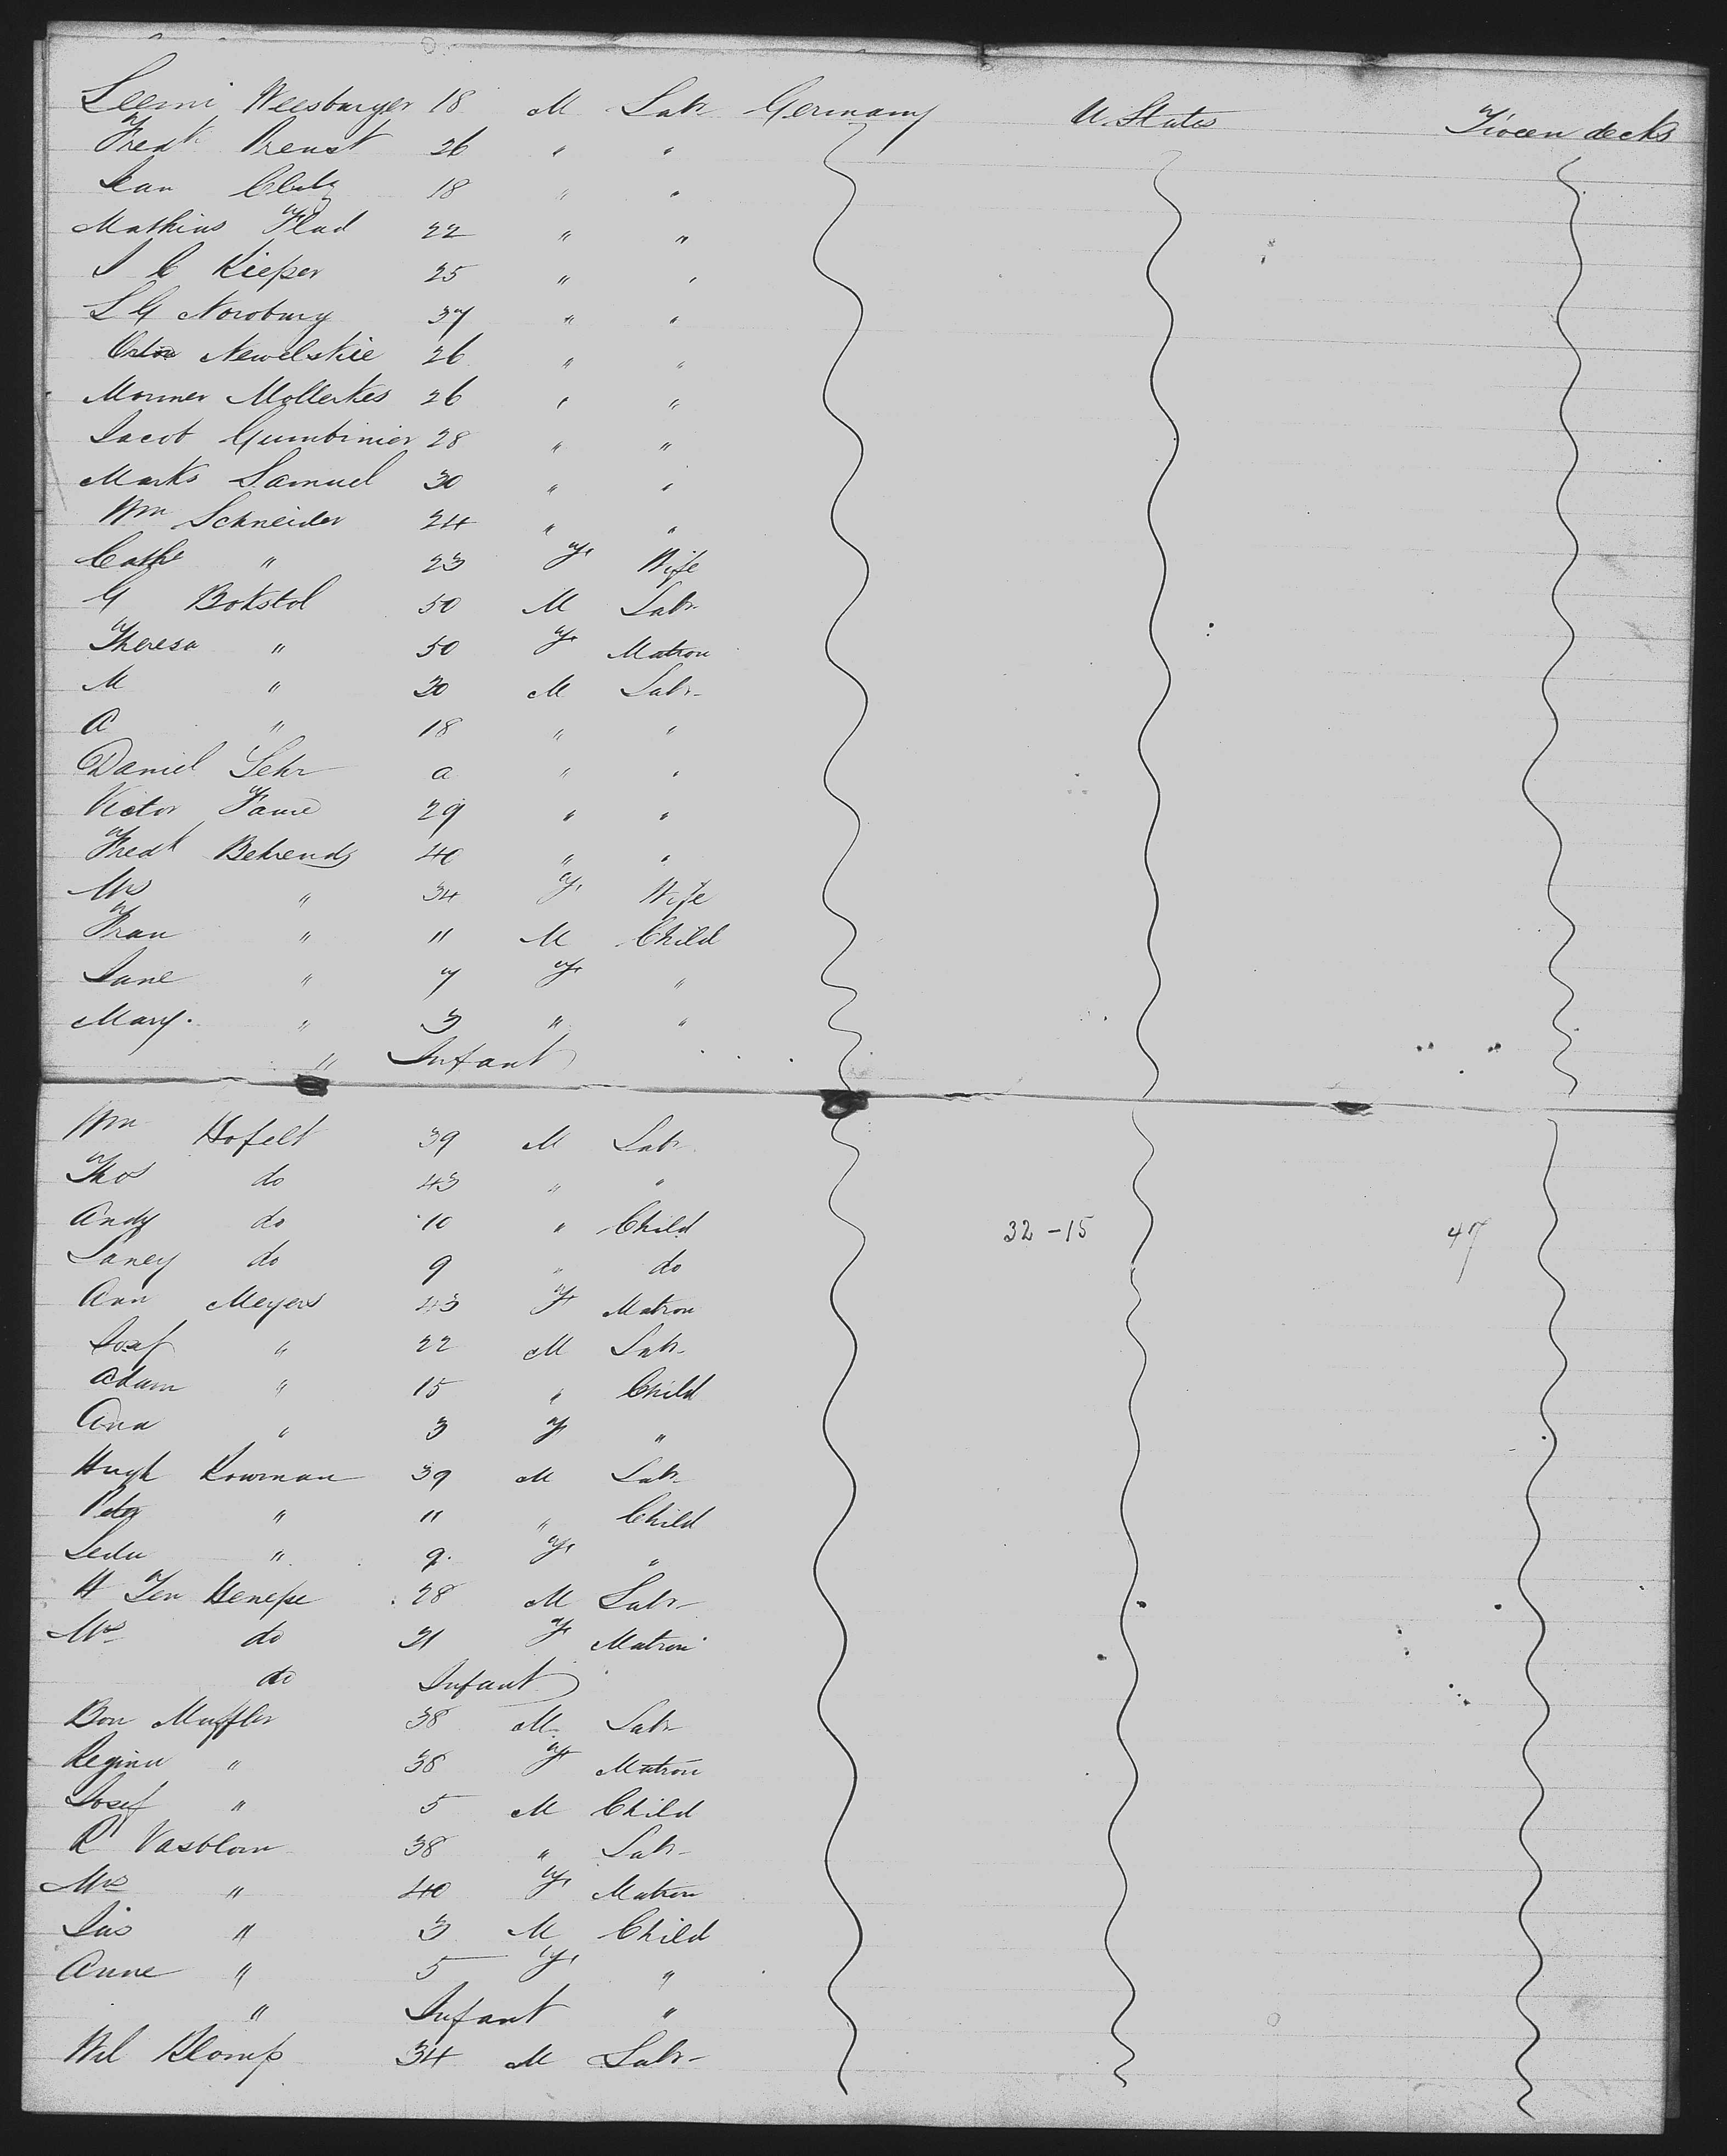 Leemi Weesburger 18 M Labr Germany U. States Tween decks
Fredk Preust 26 " "
Jean Clutz 18 " "
Mathias Flad 22 " "
J C Kieper 25 " "
L G Norobury 37 " "
Newelskie 26 " "
Mormer Mollerkes 26 " "
Jacob Gumbinier 28 " "
Marks Samuel 30 " "
Wm Schneider 24 " "
Cathe " 23 F Wife
G Bokstol 50 M Labr
Theresa " 50 F Matron
M " 20 M Labr
A " 18 " "
Daniel Sehr a " "
Victor Faure 29 " "
Fredk Behrends 40 " "
Mrs " 34 F Wife
Fran " 11 M Child
Jane " 7 F "
Mary. " 3 " "
" Infant
Wm Hofelt 39 M Labr
Thos do 43 " "
Andy do 10 " Child 32-15 47
Janey do 9 " do
Ann Meyers 43 F Matron
Josef " 22 M Labr
Adam " 15 " Child
Ana " 3 F "
Hugh Kowman 39 M Labr
Peter " 11 " Child
Ledu " 9. F "
H Ten Henepe 28 M Labr
Mrs do 31 F Matron
do Infant
Bon Muffler 38 M Labr
Regina " 38 F Matron
Josef " 5 M Child
R Vasblom 38 " Labr
Mrs " 40 F Matron
Jas " 3 M Child
Anne " 5 F "
" Infant "
Wil Klomp 34 M Labr